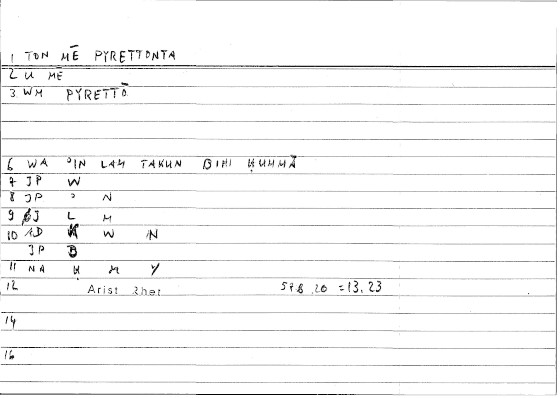 1 TON MĒ PYRETTONTA
2 U MĒ
3 WM PYRETTŌ
6 WA ʾIN LAM TAKUN BIHI ḤUMMĀ
7 JP W
8 JP ʾ N
9 BJ L M
10 AD W N
JP B
11 NA Ḥ M Y
12 Arist Rhet 57b 20 =13,23
14
16